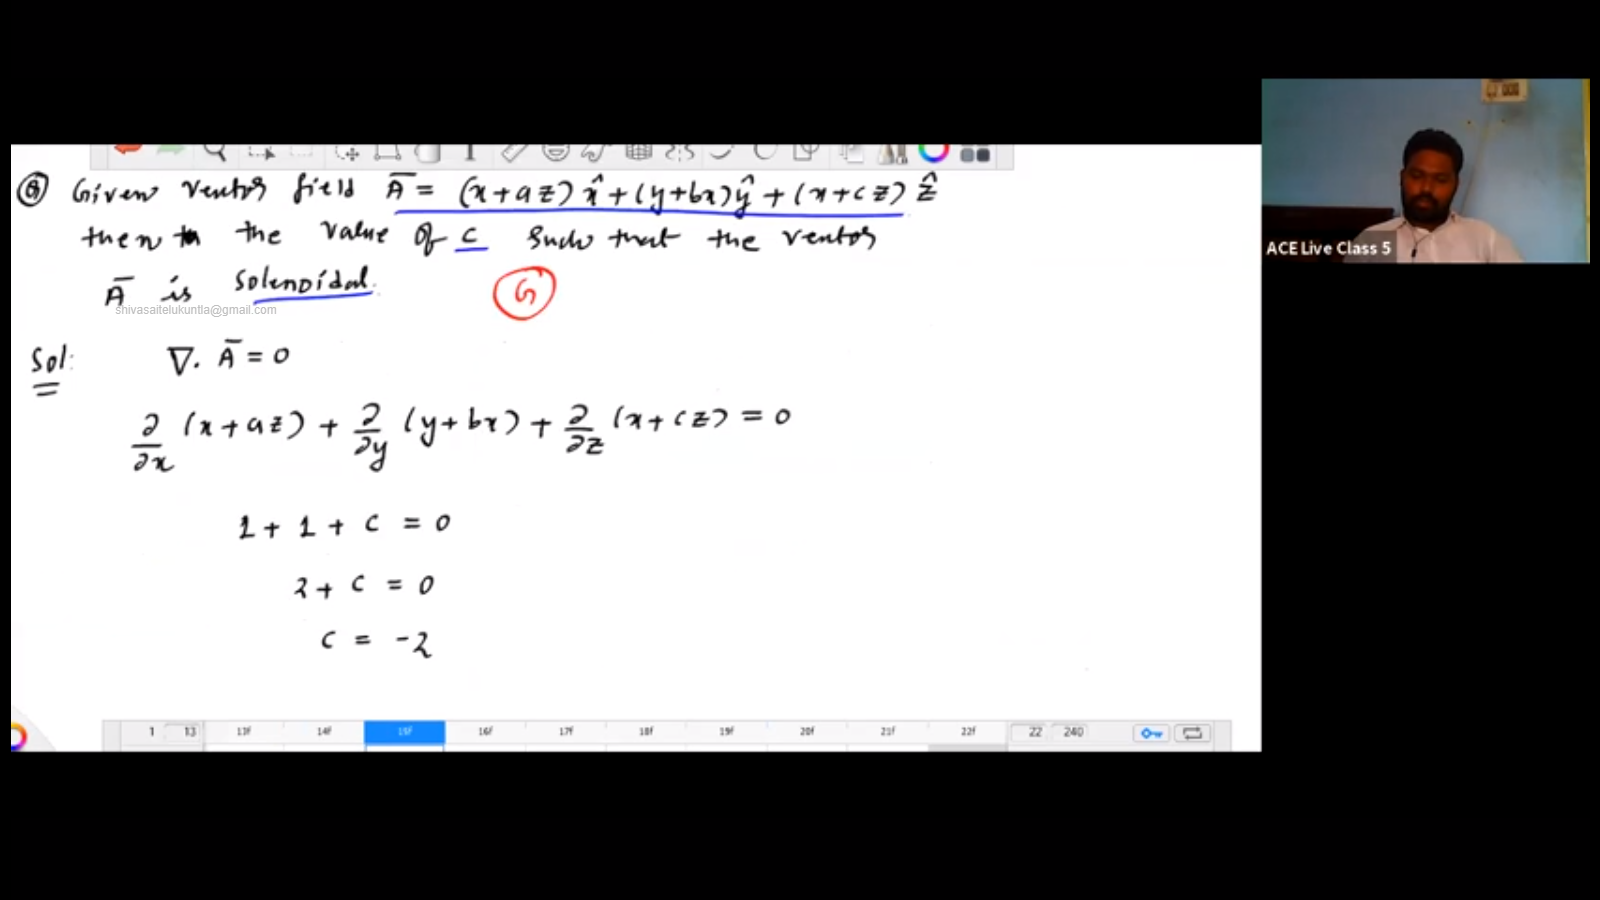 Q Given vector field A̅ = (x+az) x̂ + (y+bx) ŷ + (x+cz) ẑ
then the value of c such that the vector
A̅ is solenoidal.
G
shivasaitelukuntla@gmail.com
Sol:
∇. A̅ = 0
∂/∂x (x+az) + ∂/∂y (y+bx) + ∂/∂z (x+cz) = 0
1 + 1 + c = 0
2 + c = 0
c = -2
1 13 13f 14f 15f 16f 17f 18f 19f 20f 21f 22f 22 240
ACE Live Class 5